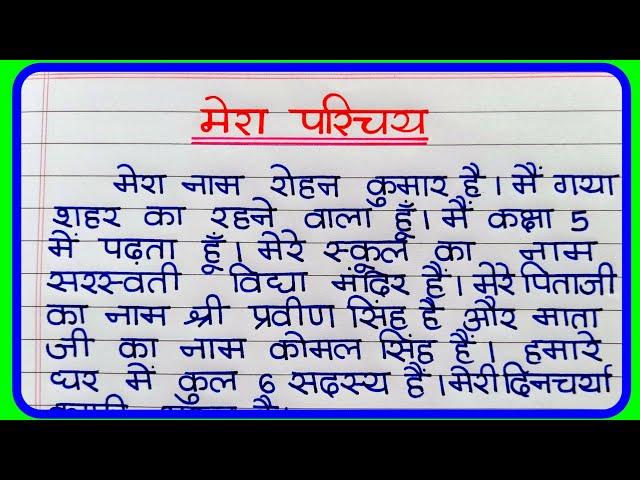 मेरा परिचय
मेरा नाम रोहन कुमार है। मैं गया
शहर का रहने वाला हूँ। मैं कक्षा 5
में पढ़ता हूँ। मेरे स्कूल का नाम
सरस्वती विद्या मंदिर हैं। मेरे पिताजी
का नाम श्री प्रवीण सिंह है और माता
जी का नाम कोमल सिंह हैं। हमारे
घर में कुल 6 सदस्य हैं। मेरी दिनचर्या